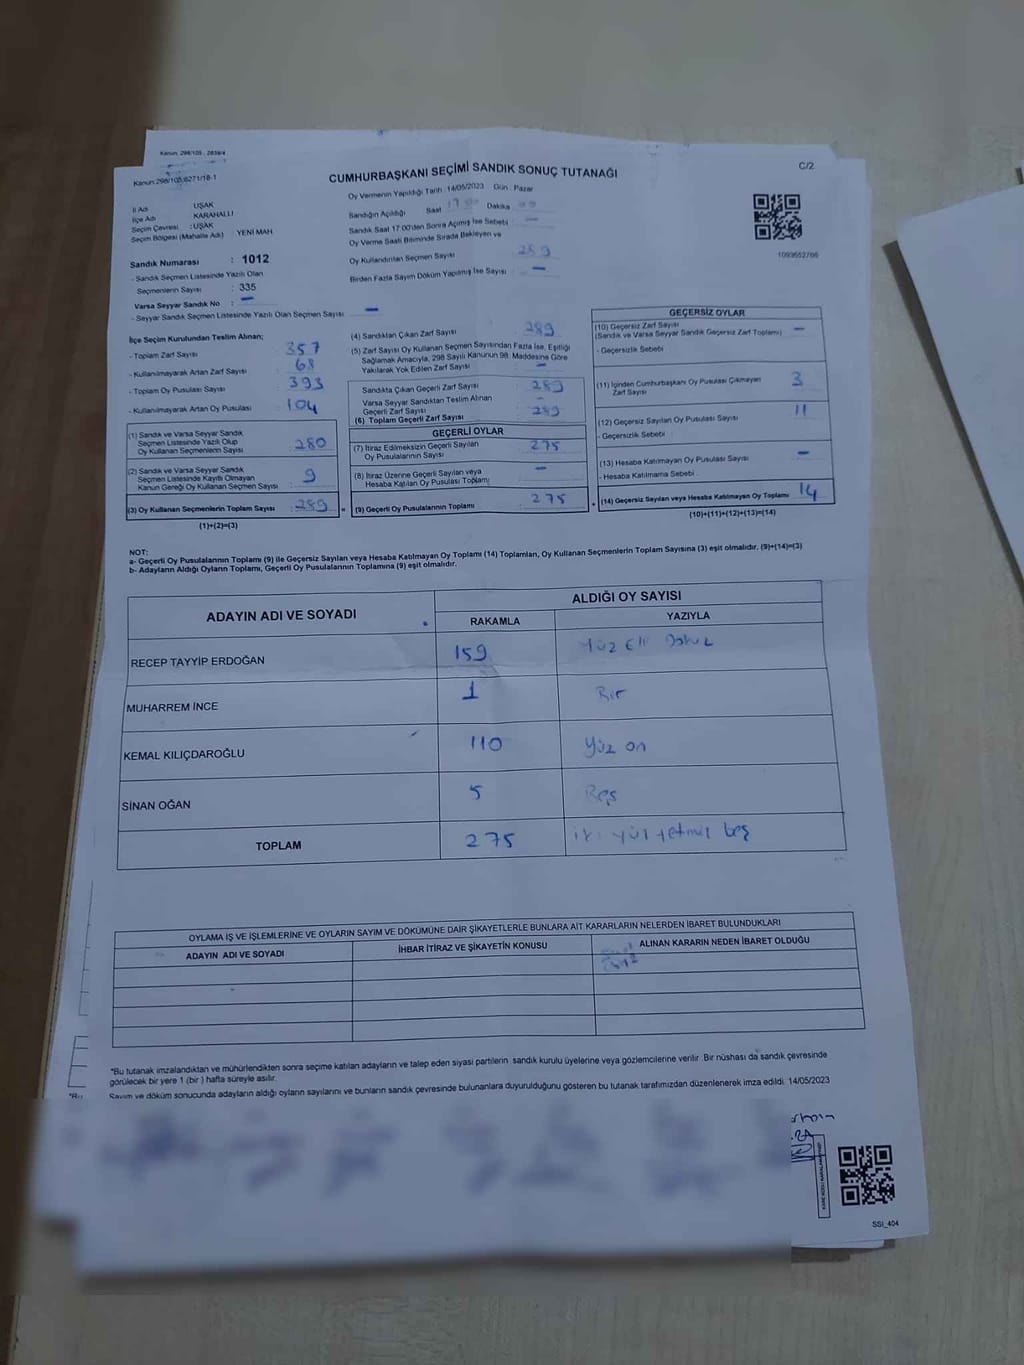 Kanun: 298/105 , 2839/4
Kanun:298/105,6271/18-1
C/2
CUMHURBAŞKANI SEÇİMİ SANDIK SONUÇ TUTANAĞI
Oy Vermenin Yapıldığı Tarih : 14/05/2023 Gün : Pazar
İl Adı : UŞAK
İlçe Adı : KARAHALLI
Seçim Çevresi : UŞAK
Seçim Bölgesi (Mahalle Adı) : YENİ MAH
Sandığın Açıldığı Saat 17 Dakika
Sandık Saat 17:00'den Sonra Açılmış İse Sebebi : —
Oy Verme Saati Bitiminde Sırada Bekleyen ve
Oy Kullandırılan Seçmen Sayısı : 289
Birden Fazla Sayım Döküm Yapılmış İse Sayısı : —
1093652766
Sandık Numarası : 1012
- Sandık Seçmen Listesinde Yazılı Olan
Seçmenlerin Sayısı : 335
Varsa Seyyar Sandık No : —
- Seyyar Sandık Seçmen Listesinde Yazılı Olan Seçmen Sayısı : —
İlçe Seçim Kurulundan Teslim Alınan;
- Toplam Zarf Sayısı : 357
- Kullanılmayarak Artan Zarf Sayısı : 68
- Toplam Oy Pusulası Sayısı : 393
- Kullanılmayarak Artan Oy Pusulası : 104
(1) Sandık ve Varsa Seyyar Sandık
Seçmen Listesinde Yazılı Olup
Oy Kullanan Seçmenlerin Sayısı : 280
(2) Sandık ve Varsa Seyyar Sandık
Seçmen Listesinde Kayıtlı Olmayan
Kanun Gereği Oy Kullanan Seçmen Sayısı : 9
(3) Oy Kullanan Seçmenlerin Toplam Sayısı : 289 =
(1)+(2)=(3)
(4) Sandıktan Çıkan Zarf Sayısı : 289
(5) Zarf Sayısı Oy Kullanan Seçmen Sayısından Fazla İse, Eşitliği
Sağlamak Amacıyla, 298 Sayılı Kanunun 98. Maddesine Göre
Yakılarak Yok Edilen Zarf Sayısı : —
Sandıkta Çıkan Geçerli Zarf Sayısı : 289
Varsa Seyyar Sandıktan Teslim Alınan
Geçerli Zarf Sayısı : -
(6) Toplam Geçerli Zarf Sayısı : 289
GEÇERLİ OYLAR
(7) İtiraz Edilmeksizin Geçerli Sayılan
Oy Pusulalarının Sayısı : 275
(8) İtiraz Üzerine Geçerli Sayılan veya
Hesaba Katılan Oy Pusulası Toplamı : —
(9) Geçerli Oy Pusulalarının Toplamı : 275 +
GEÇERSİZ OYLAR
(10) Geçersiz Zarf Sayısı
(Sandık ve Varsa Seyyar Sandık Geçersiz Zarf Toplamı) : —
- Geçersizlik Sebebi :
(11) İçinden Cumhurbaşkanı Oy Pusulası Çıkmayan
Zarf Sayısı : 3
(12) Geçersiz Sayılan Oy Pusulası Sayısı : 11
- Geçersizlik Sebebi :
(13) Hesaba Katılmayan Oy Pusulası Sayısı : —
- Hesaba Katılmama Sebebi :
(14) Geçersiz Sayılan veya Hesaba Katılmayan Oy Toplamı : 14
(10)+(11)+(12)+(13)=(14)
NOT:
a- Geçerli Oy Pusulalarının Toplamı (9) ile Geçersiz Sayılan veya Hesaba Katılmayan Oy Toplamı (14) Toplamları, Oy Kullanan Seçmenlerin Toplam Sayısına (3) eşit olmalıdır. (9)+(14)=(3)
b- Adayların Aldığı Oyların Toplamı, Geçerli Oy Pusulalarının Toplamına (9) eşit olmalıdır.
ADAYIN ADI VE SOYADI
ALDIĞI OY SAYISI
RAKAMLA YAZIYLA
RECEP TAYYİP ERDOĞAN 159 Yüz Elli Dokuz
MUHARREM İNCE 1 Bir
KEMAL KILIÇDAROĞLU 110 Yüz on
SİNAN OĞAN 5 Beş
TOPLAM 275 iki yüz yetmiş beş
OYLAMA İŞ VE İŞLEMLERİNE VE OYLARIN SAYIM VE DÖKÜMÜNE DAİR ŞİKAYETLERLE BUNLARA AİT KARARLARIN NELERDEN İBARET BULUNDUKLARI
ADAYIN ADI VE SOYADI İHBAR İTİRAZ VE ŞİKAYETİN KONUSU ALINAN KARARIN NEDEN İBARET OLDUĞU
*Bu tutanak imzalandıktan ve mühürlendikten sonra seçime katılan adayların ve talep eden siyasi partilerin sandık kurulu üyelerine veya gözlemcilerine verilir. Bir nüshası da sandık çevresinde
görülecek bir yere 1 (bir) hafta süreyle asılır.
*Bu
Sayım ve döküm sonucunda adayların aldığı oyların sayılarını ve bunların sandık çevresinde bulunanlara duyurulduğunu gösteren bu tutanak tarafımızdan düzenlenerek imza edildi. 14/05/2023
SSI_404